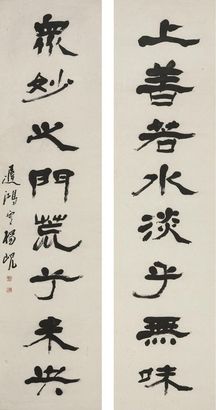 上善若水淡乎無味
眾妙之門荒乎未央
遲鴻楊峴